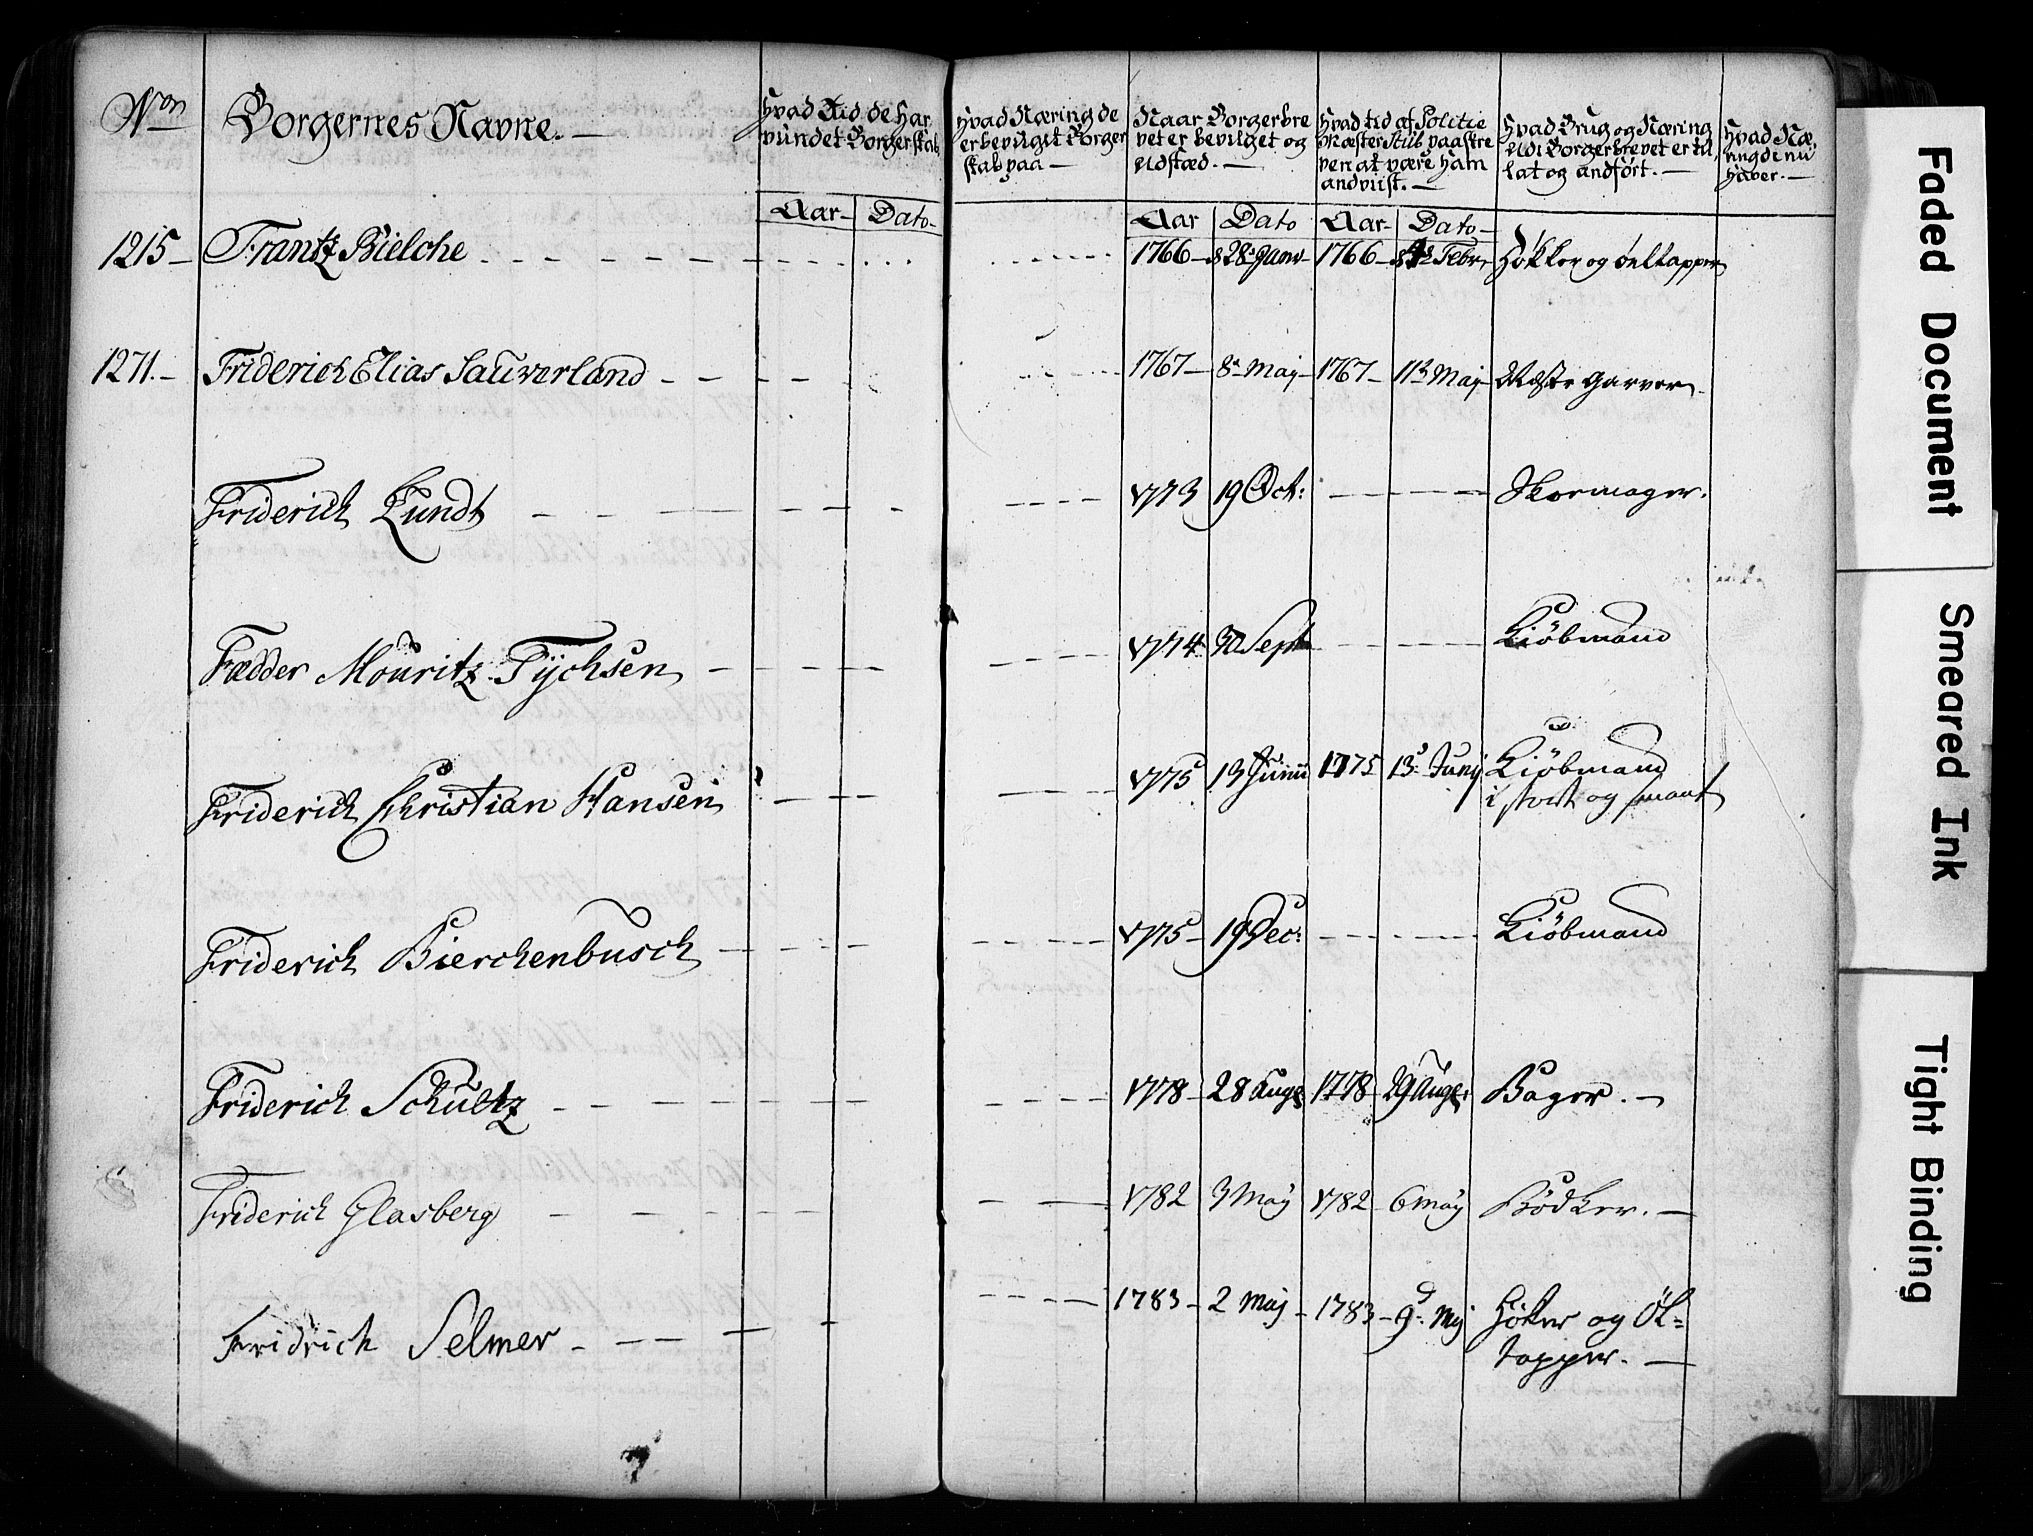 Non Borgernes Navne. — Hvad Tid de har vundet Borgerskab Hvad Næring de er bevilget Borgerskab paa — Naar Borgerbrevet er bevilget og Udstæd. — Hvad tid af Politie Mæster Stüb paaskreven at være ham andviist. — Hvad Brug og Næring Udi Borgerbrevet er tillat og andført. — Hvad Næring de nu haver. —
Aar — Dato — Aar Dato Aar — Dato —
1215 — Frantz Bielche 1766 — d 28 Janv 1766 — Febr Høkker og øeltapper
1271. — Friderich Elias Sauverland 1767 — 8 Maj — 1767 — 11 Maj Garver
Friderich Lundt 1773 19 Oct: Skoemager.
Fædder Mouritz Tÿchsen 1774 30 Sept Kiøbmand
Friderich Christian Hansen 1775 13 Junii 1775 13 Junij Kiøbmand
i stort og smaat
Friderich Bierchenbusch 1775 — 19 Dec: Kiøbmand
Friderich Schultz 1778 — 28 Aug 1778 29 Aug: Bager. —
Friderich Glasberg 1782 3 Maÿ 1782 6 Maÿ Bødker. —
Fridrich Selmer — 1783 — 2 Maj — 1783 — 9 Mj Høker og Öl=
tapper. —
Faded Document
Smeared Ink
Tight Binding